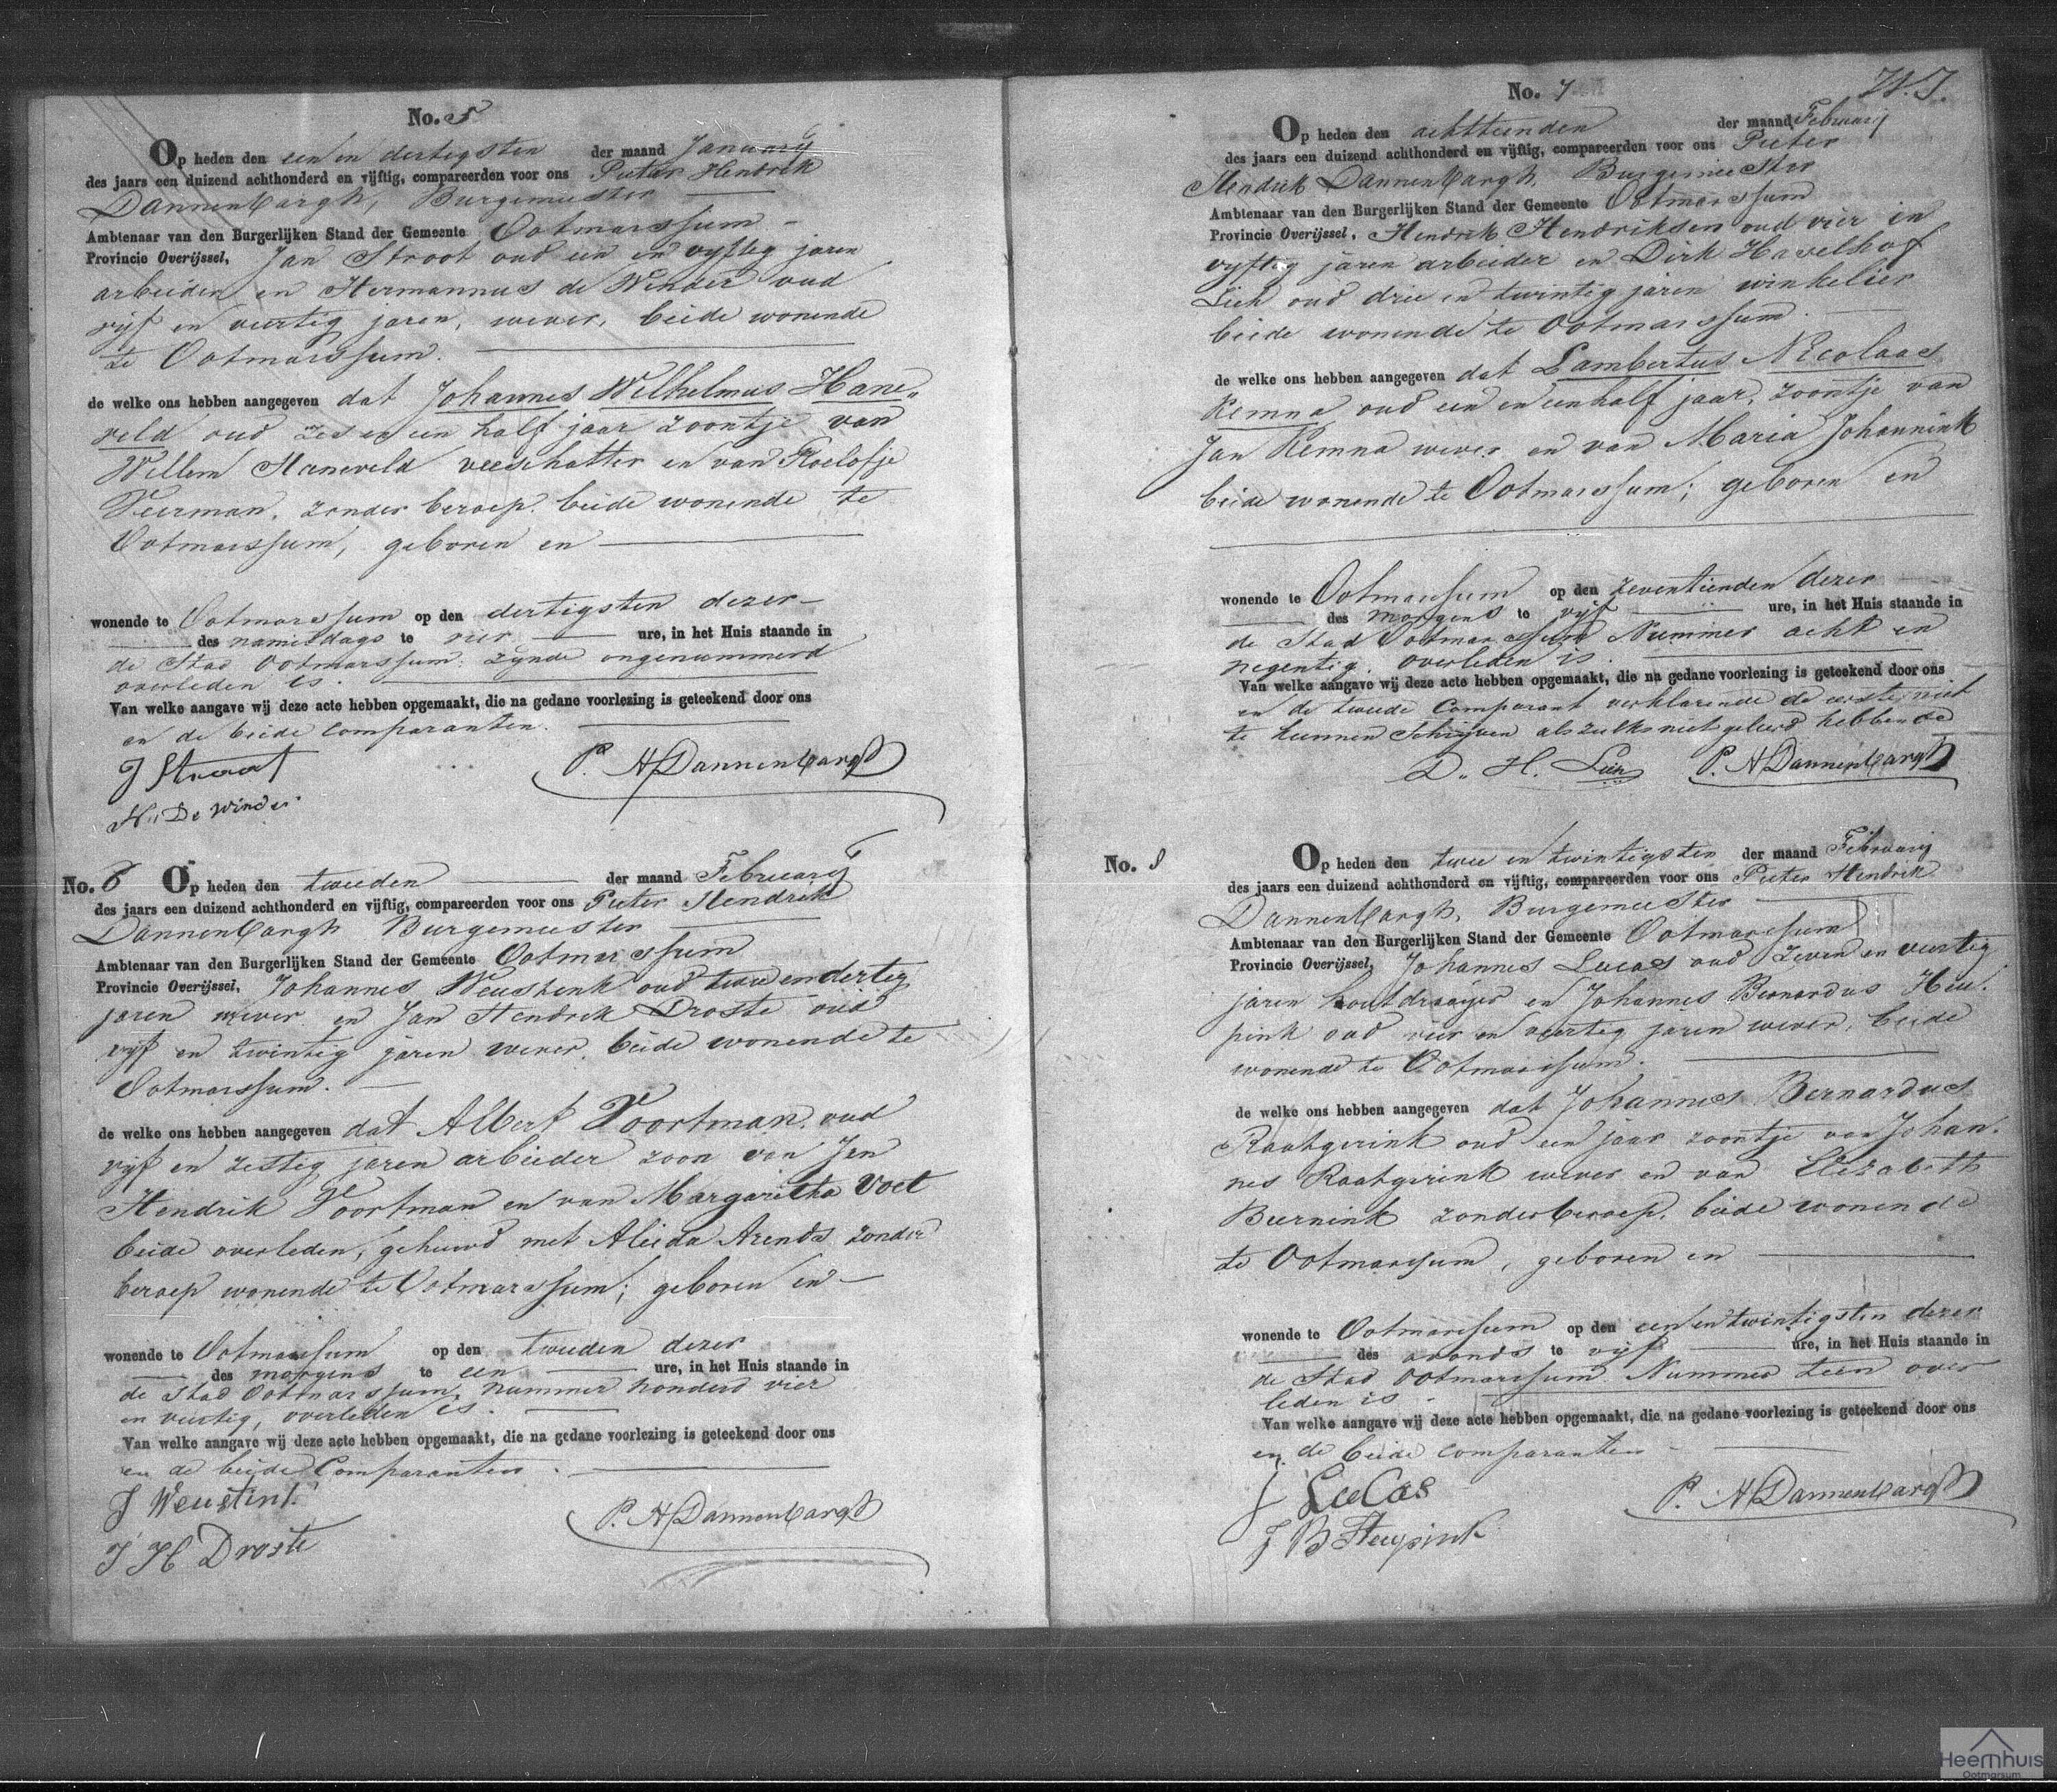 No. 5
Op heden den een en dertigsten der maand Januarij
des jaars een duizend achthonderd en vijftig, compareerden voor ons Pieter Hendrik
Dannenbargh, Burgemeester
Ambtenaar van den Burgerlijken Stand der Gemeente Ootmarssum
Provincie Overijssel, Jan Stroot oud een en vyftig jaren
arbeider en Hermannus de Winder oud
vijf en veertig jaren, wever, beide wonende
te Ootmarssum.
de welke ons hebben aangegeven dat Johannes Wilhelmus Hane„
veld oud zes en een half jaar zoontje van
Willem Haneveld veeschatter en van Roelofje
Veerman, zonder beroep, beide wonende te
Ootmarssum, geboren en
wonende te Ootmarssum op den dertigsten dezer
des namiddags te vier ure, in het Huis staande in
de Stad Ootmarssum, zynde ongenummerd
overleden is.
Van welke aangave wij deze acte hebben opgemaakt, die na gedane voorlezing is geteekend door ons
en de beide comparanten.
J Stroot
P. H Dannenbargh
H. De Winder
No. 6 Op heden den tweeden der maand Februarij
des jaars een duizend achthonderd en vijftig, compareerden voor ons Pieter Hendrik
Dannenbargh Burgemeester
Ambtenaar van den Burgerlijken Stand der Gemeente Ootmarssum
Provincie Overijssel, Johannes Weustink oud twee en dertig
jaren wever en Jan Hendrik Droste oud
vijf en twintig jaren wever, beide wonende te
Ootmarssum.
de welke ons hebben aangegeven dat Albert Voortman, oud
vijf en zestig jaren arbeider zoon van Jan
Hendrik Voortman en van Margaretha Voet
beide overleden, gehuwd met Aleida Arends zonder
beroep wonende te Ootmarssum; geboren en
wonende te Ootmarssum op den tweeden dezer
des morgens te een ure, in het Huis staande in
de Stad Ootmarssum, nummer honderd vier
en veertig, overleden is.
Van welke aangave wij deze acte hebben opgemaakt, die na gedane voorlezing is geteekend door ons
en de beide Comparanten.
J Weustink
P. H Dannenbargh
J H Droste
No. 7
Op heden den achttienden der maand Februarij
des jaars een duizend achthonderd en vijftig, compareerden voor ons Pieter
Hendrik Dannenbargh, Burgemeester
Ambtenaar van den Burgerlijken Stand der Gemeente Ootmarssum
Provincie Overijssel, Hendrik Hendriksen oud vier en
vyftig jaren arbeider en Dirk Havelhof
Lieh oud drie en twintig jaren winkelier
beide wonende te Ootmarssum.
de welke ons hebben aangegeven dat Lambertus Nicolaas
Remna oud een en een half jaar, zoontje van
Jan Remna wever en van Maria Johannink
beide wonende te Ootmarssum; geboren en
wonende te Ootmarssum op den zeventienden dezer
des morgens te vijf ure, in het Huis staande in
de Stad Ootmarssum Nummer acht en
negentig, overleden is.
Van welke aangave wij deze acte hebben opgemaakt, die na gedane voorlezing is geteekend door ons
en de tweede Comparant verklarende de eerste niet
te kunnen Schryven als zulks niet geleerd hebbende
D. H. Lieh P. H Dannenbargh
No. 8 Op heden den twee en twintigsten der maand Februarij
des jaars een duizend achthonderd en vijftig, compareerden voor ons Pieter Hendrik
Dannenbargh, Burgemeester
Ambtenaar van den Burgerlijken Stand der Gemeente Ootmarssum
Provincie Overijssel, Johannes Lucas oud zeven en veertig
jaren houtdraaijer en Johannes Bernardus Heu„
pink oud vier en veertig jaren wever, beide
wonende te Ootmarssum.
de welke ons hebben aangegeven dat Johannes Bernardus
Raatgerink oud een jaar zoontje van Johan„
nes Raatgerink wever en van Elizabeth
Beernink zonder beroep, beide wonende
te Ootmarssum, geboren en
wonende te Ootmarssum op den een en twintigsten dezer
des avonds te vijf ure, in het Huis staande in
de Stad Ootmarssum Nummer tien over
leden is.
Van welke aangave wij deze acte hebben opgemaakt, die na gedane voorlezing is geteekend door ons
en de beide comparanten
J Lucas
P. H Dannenbargh
J B Heupink
Heemhuis
Ootmarsum